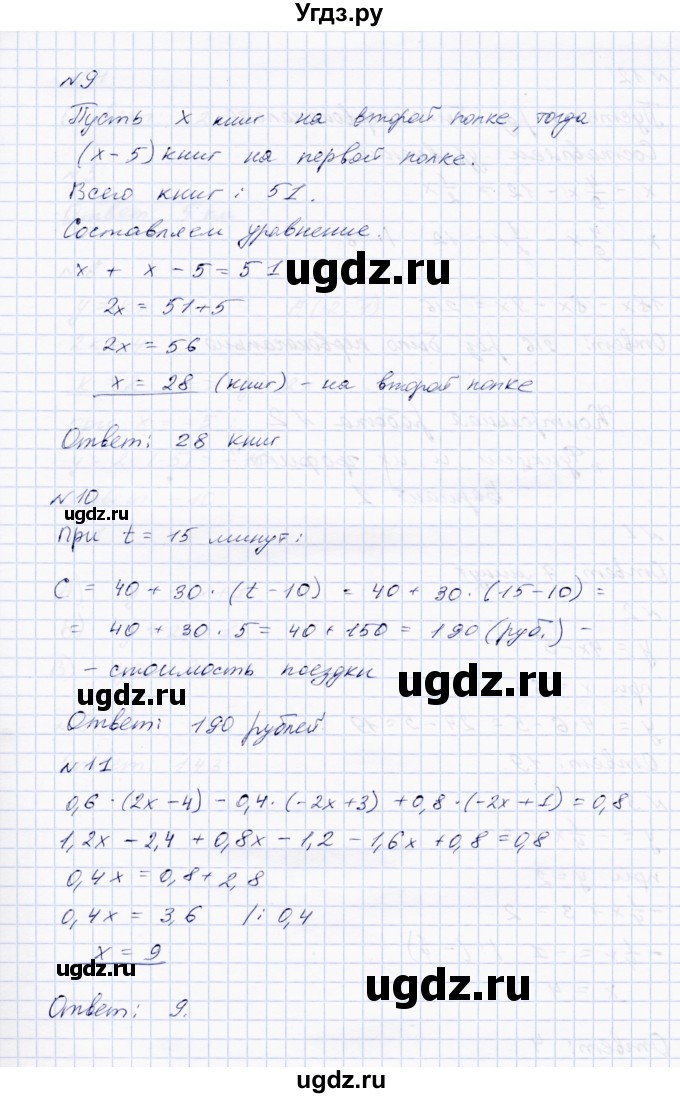 Угдз.ру
№9
Пусть х книг на второй полке, тогда
(х - 5) книг на первой полке.
Всего книг: 51.
Составляем уравнение.
х + х - 5 = 51
ugdz.ru
2х = 51+5
2х = 56
х = 28 (книг) - на второй полке
Ответ: 28 книг
№10
ugdz.ru
При t = 15 минут:
C = 40 + 30 · (t - 10) = 40 + 30 · (15 - 10) =
= 40 + 30 · 5 = 40 + 150 = 190 (руб.) -
- стоимость поездки
ugdz.ru
ugdz.ru
Ответ: 190 рублей
№11
0,6 · (2х - 4) - 0,4 · (-2х + 3) + 0,8 · (-2х + 1) = 0,8
1,2х - 2,4 + 0,8х - 1,2 - 1,6х + 0,8 = 0,8
0,4х = 0,8 + 2,8
0,4х = 3,6 /: 0,4
х = 9
ugdz.ru
ugdz.ru
Ответ: 9.
ugdz.ru